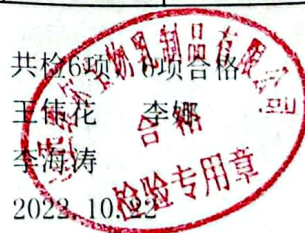 共检6项，6项合格
王伟花 李娜
李海涛
2022.10.22
合格
检验专用章